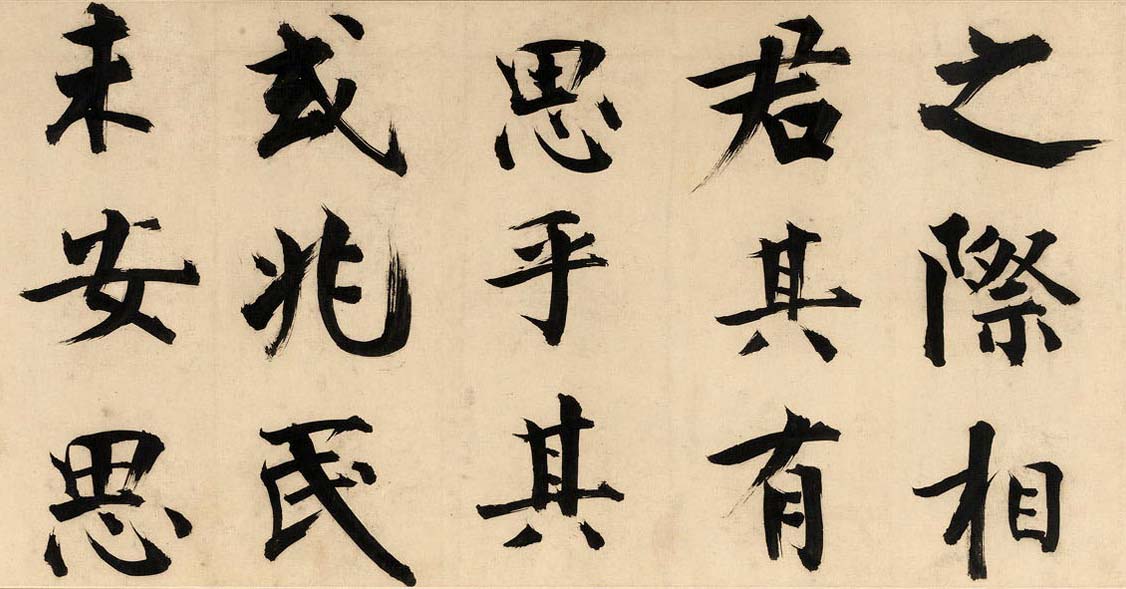 之際相
君其有
思乎其
或兆民
未安思